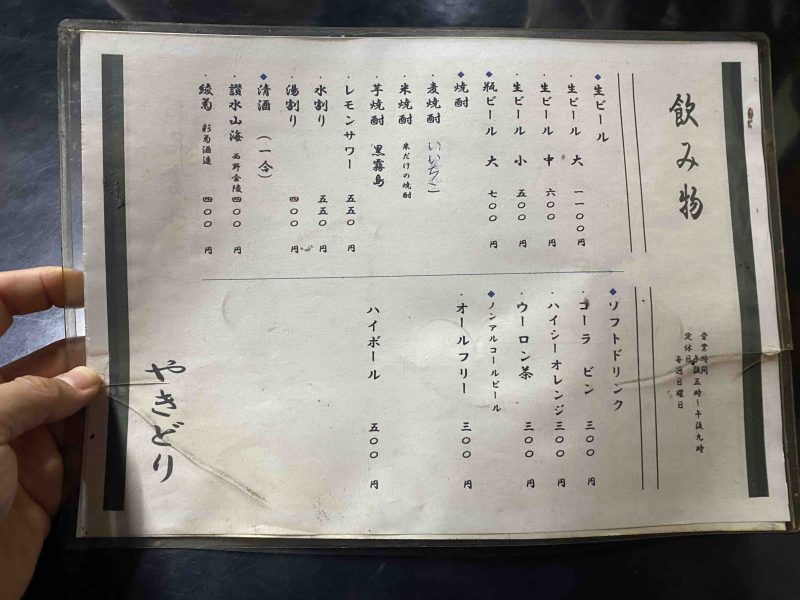 飲み物
◆生ビール
・生ビール 大 一一〇〇円
・生ビール 中 六〇〇円
・生ビール 小 五〇〇円
◆瓶ビール 大 七〇〇円
◆焼酎
・麦焼酎 いいちこ)
・米焼酎 米だけの焼酎
・芋焼酎 黒霧島
・レモンサワー 五五〇円
・水割り 五五〇円
・湯割り 四〇〇円
◆清酒 (一合)
・讃水山海 西野金陵 四〇〇円
・綾菊 彩菊酒造 四〇〇円
営業時間 午後五時～午後九時
定休日 毎週日曜日
◆ソフトドリンク
・コーラ ビン 三〇〇円
・ハイシーオレンジ 三〇〇円
・ウーロン茶 三〇〇円
◆ノンアルコールビール
・オールフリー 三〇〇円
ハイボール 五〇〇円
やきどり